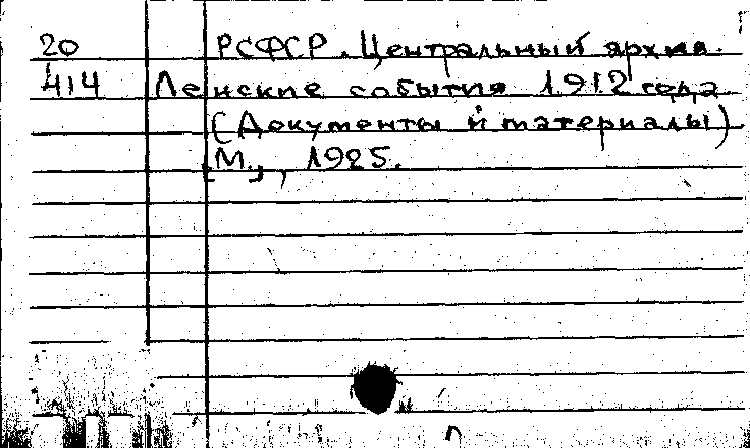 20 РСФСР. Центральный архив.
414 Ленские события 1912 года
(Документы и материалы)
[М.], 1925.